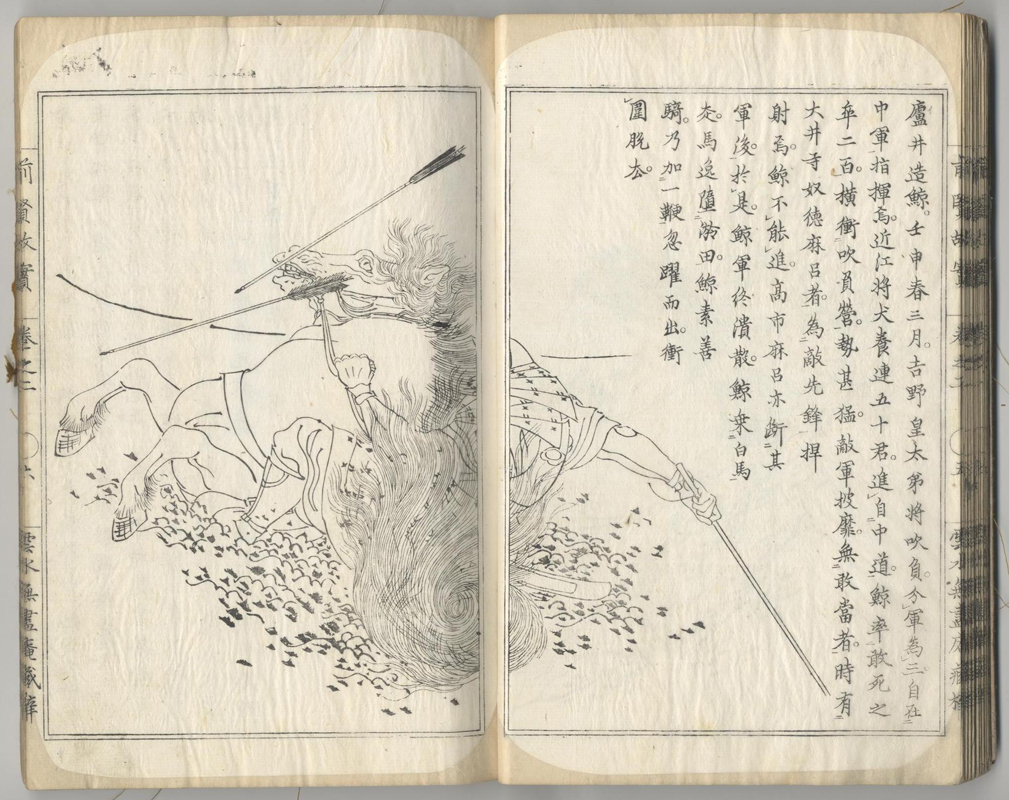 廬井造鯨。壬申春三月。吉野皇太弟将吹負。令軍為三自在
中軍指揮焉近江将犬養連五十君。進自中道。鯨率敢死之
卒二百。横衝吹負營。勢甚猛。敵軍披靡。無敢當者。時有
大井寺奴徳麻呂者。為敵先鋒捍
射焉。鯨不能進。高市麻呂亦断其
軍後。於是鯨軍終潰散。鯨乗白馬
走。馬逸墮泥田。鯨素善
騎。乃加一鞭忽躍而出。衝
圍脱去。
前賢故實 卷之二 〇六 雲水無盡庵蔵